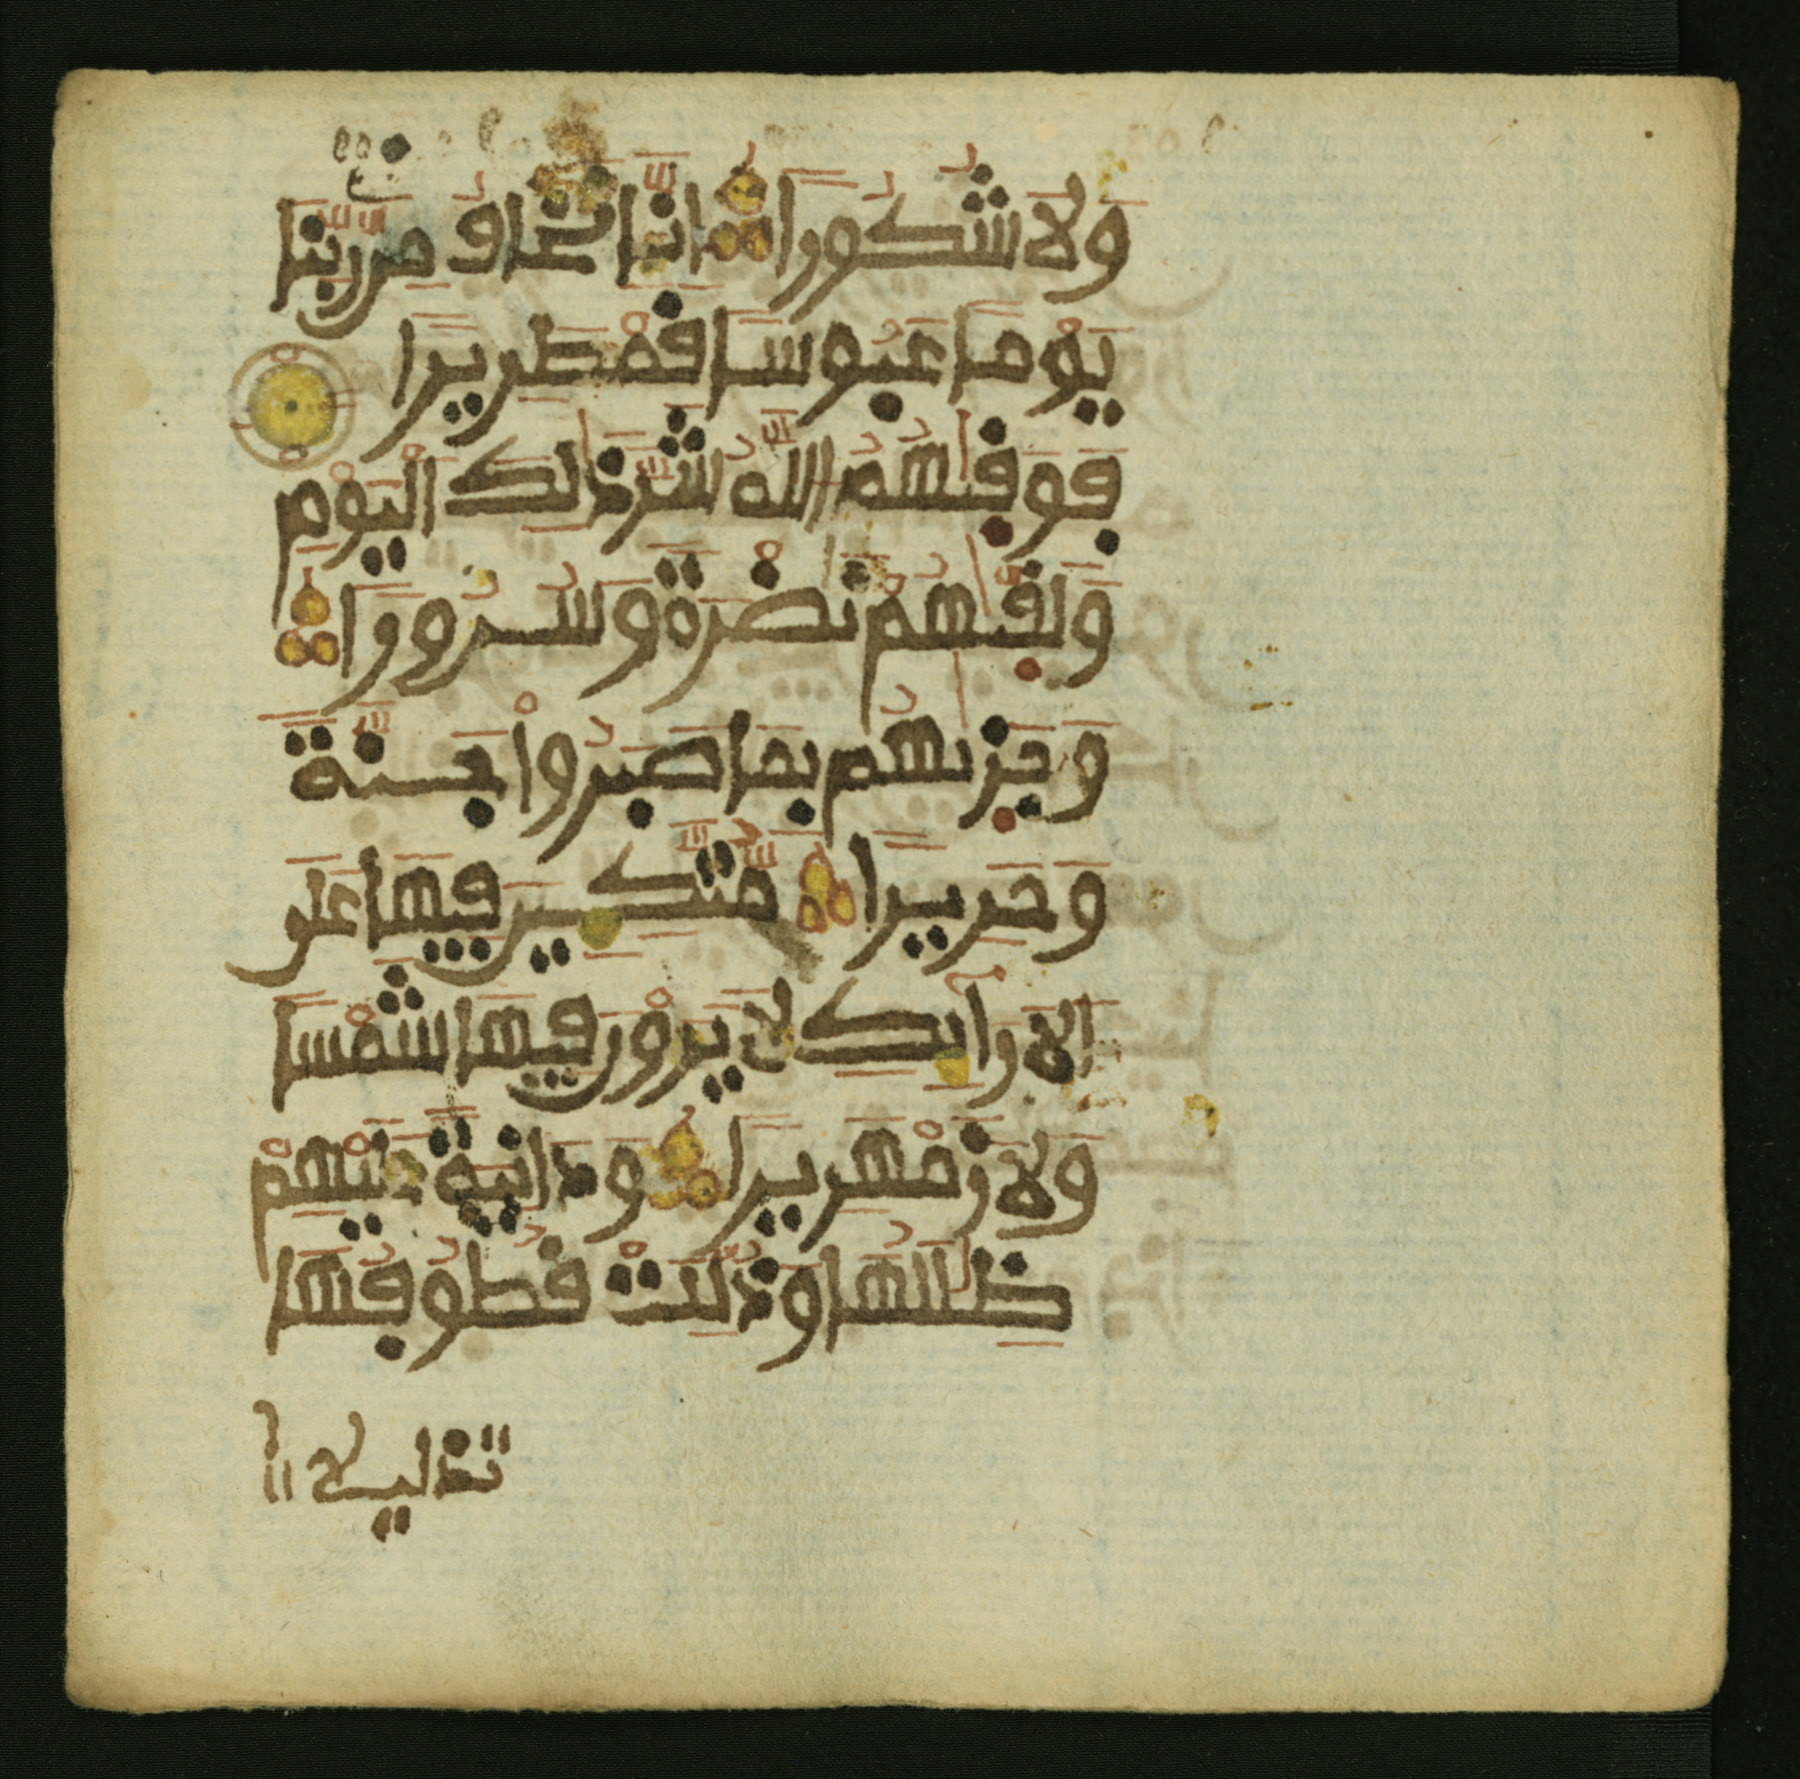 ولا شكورا انا نخاف من ربنا
يوما عبوسا قمطريرا
فوقيهم الله شر ذلك اليوم
ولقيهم نضرة وسرورا
وجزيهم بما صبروا جنة
وحريرا متكين فيها على
الارآئك لا يرون فيها شمسا
ولا زمهريرا ودانية عليهم
ظللها وذللت قطوفها
تذليلا